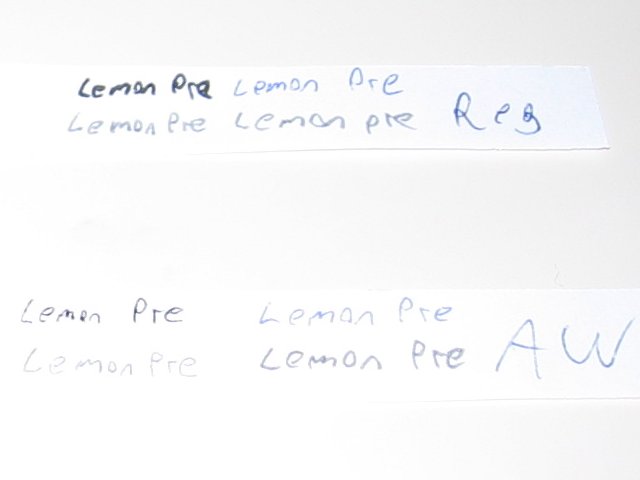 Lemon Pre Lemon Pre
Lemon Pre Lemon pre Reg
Lemon Pre Lemon Pre
Lemon Pre Lemon Pre AW